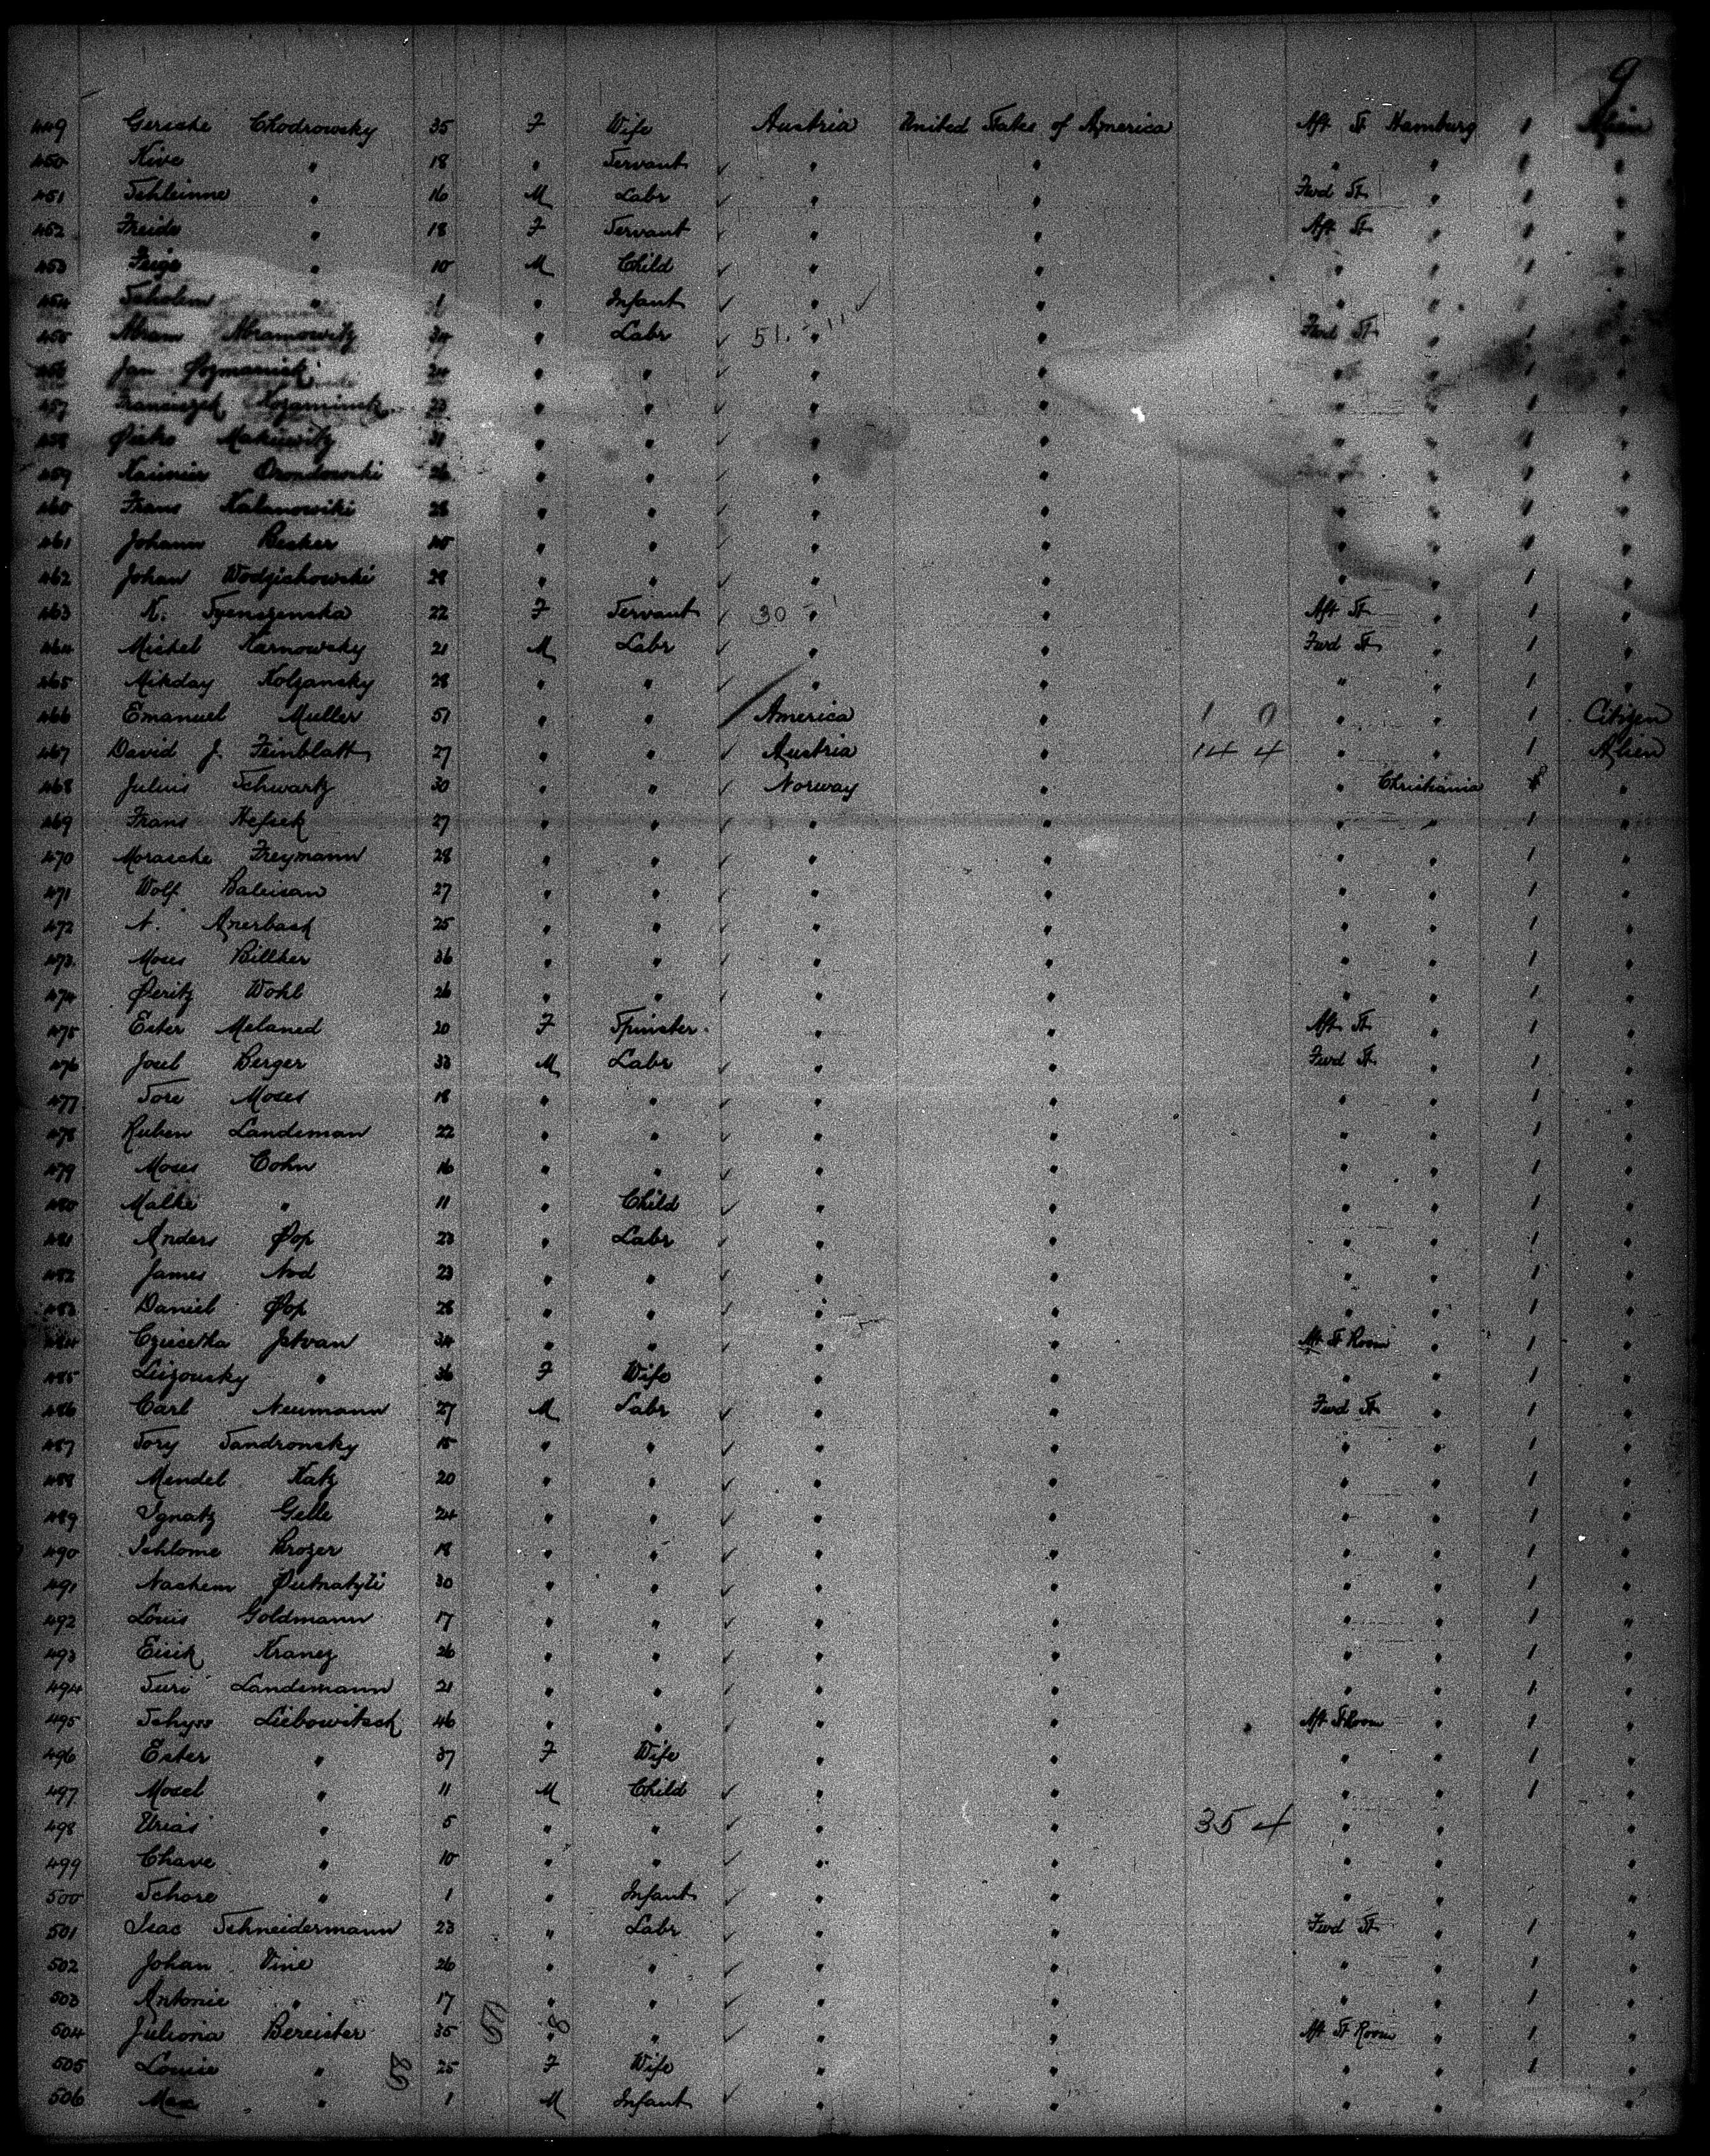 9
449 Gersche Chodrowsky 35 F Wife Austria United States of America Aft St Hamburg 1 Alien
450 Kive " 18 " Servant ✓ " " " " 1 "
451 Schleinne " 16 M Labr ✓ " " Fwd St " 1 "
452 Freide " 18 F Servant ✓ " " Aft St " 1 "
453 Feige " 10 M Child ✓ " " " " 1 "
454 Scholem " 1 " Infant ✓ " " " " 1 "
455 Abram Abramowitz 34 " Labr ✓ " " Fwd St " 1 "
456 Jan 24 " " ✓ " " " " 1 "
457 23 " " ✓ " " " " 1 "
458 31 " " ✓ " " " " 1 "
459 26 " " ✓ " " " " 1 "
460 Frans Kalanowiki 28 " " ✓ " " " " 1 "
461 Johann Becker 45 " " ✓ " " " " 1 "
462 Johan Wodzichowski 28 " " ✓ " " " " 1 "
463 K. 22 F Servant ✓ 30 " " Aft St " 1 "
464 Michel Karnowsky 21 M Labr ✓ " " Fwd St " 1 "
465 Mikday Kolzansky 28 " " ✓ " " " " 1 "
466 Emanuel Muller 51 " " America " 1 0 " " 1 Citizen
467 David J. Feinblatt 27 " " ✓ Austria " 14 4 " " 1 Alien
468 Julius Schwartz 30 " " ✓ Norway " " Christiania "
469 Frans Hefsek 27 " " ✓ " " " " 1 "
470 Morasche Freymann 28 " " ✓ " " " " 1 "
471 Wolf Baleisan 27 " " ✓ " " " " 1 "
472 A. Anerbach 25 " " ✓ " " " " 1 "
473 Moses Billker 36 " " ✓ " " " " 1 "
474 Peritz Wohl 26 " " ✓ " " " " 1 "
475 Ester Melamed 20 F Spinster " " Aft St " 1 "
476 Joel Berger 33 M Labr ✓ " " Fwd St " 1 "
477 Tore Moses 18 " " ✓ " " " " 1 "
478 Ruben Landsman 22 " " ✓ " " " " 1 "
479 Moses Cohn 16 " " ✓ " " " " 1 "
480 Malke " 11 " Child ✓ " " " " 1 "
481 Anders Pop 23 " Labr ✓ " " " " 1 "
482 James Nod 23 " " ✓ " " " " 1 "
483 Daniel Pop 28 " " ✓ " " " " 1 "
484 Istvan 34 " " " " Aft St Room " 1 "
485 Luizonsky " 36 F Wife " " " " 1 "
486 Carl Neumann 27 M Labr ✓ " " Fwd St " 1 "
487 Tory Sandronsky 15 " " ✓ " " " " 1 "
488 Mendel Katz 20 " " ✓ " " " " 1 "
489 Ignatz Gelle 24 " " ✓ " " " " 1 "
490 Schlome Brozer 18 " " ✓ " " " " 1 "
491 Nachem 30 " " ✓ " " " " 1 "
492 Louis Goldmann 17 " " ✓ " " " " 1 "
493 Eisik Kranez 26 " " ✓ " " " " 1 "
494 Turi Landsmann 21 " " ✓ " " " " 1 "
495 Liebowitsch 46 " " ✓ " " Aft St Room " 1 "
496 Ester " 37 F Wife " " " " 1 "
497 Mosel " 11 M Child ✓ " " " " 1 "
498 Urias " 5 " " ✓ " " 35 4 " " "
499 Chave " 10 " " ✓ " " " " "
500 Schore " 1 " Infant ✓ " " " " "
501 Isac Schneidermann 23 " Labr ✓ " " Fwd St " 1 "
502 Johan Vine 26 " " ✓ " " " " 1 "
503 Antonie " 17 " " ✓ " " " " 1 "
504 Juliona Bereister 35 " " ✓ " " Aft St Room " 1 "
505 Louise " 25 F Wife " " " " 1 "
506 Max " 1 M Infant ✓ " " " " "